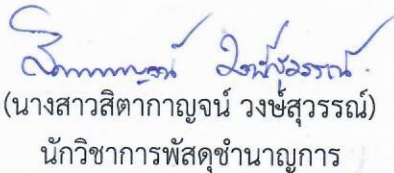 สิตากาญจน์ วงษ์สุวรรณ์
(นางสาวสิตากาญจน์ วงษ์สุวรรณ์)
นักวิชาการพัสดุชำนาญการ